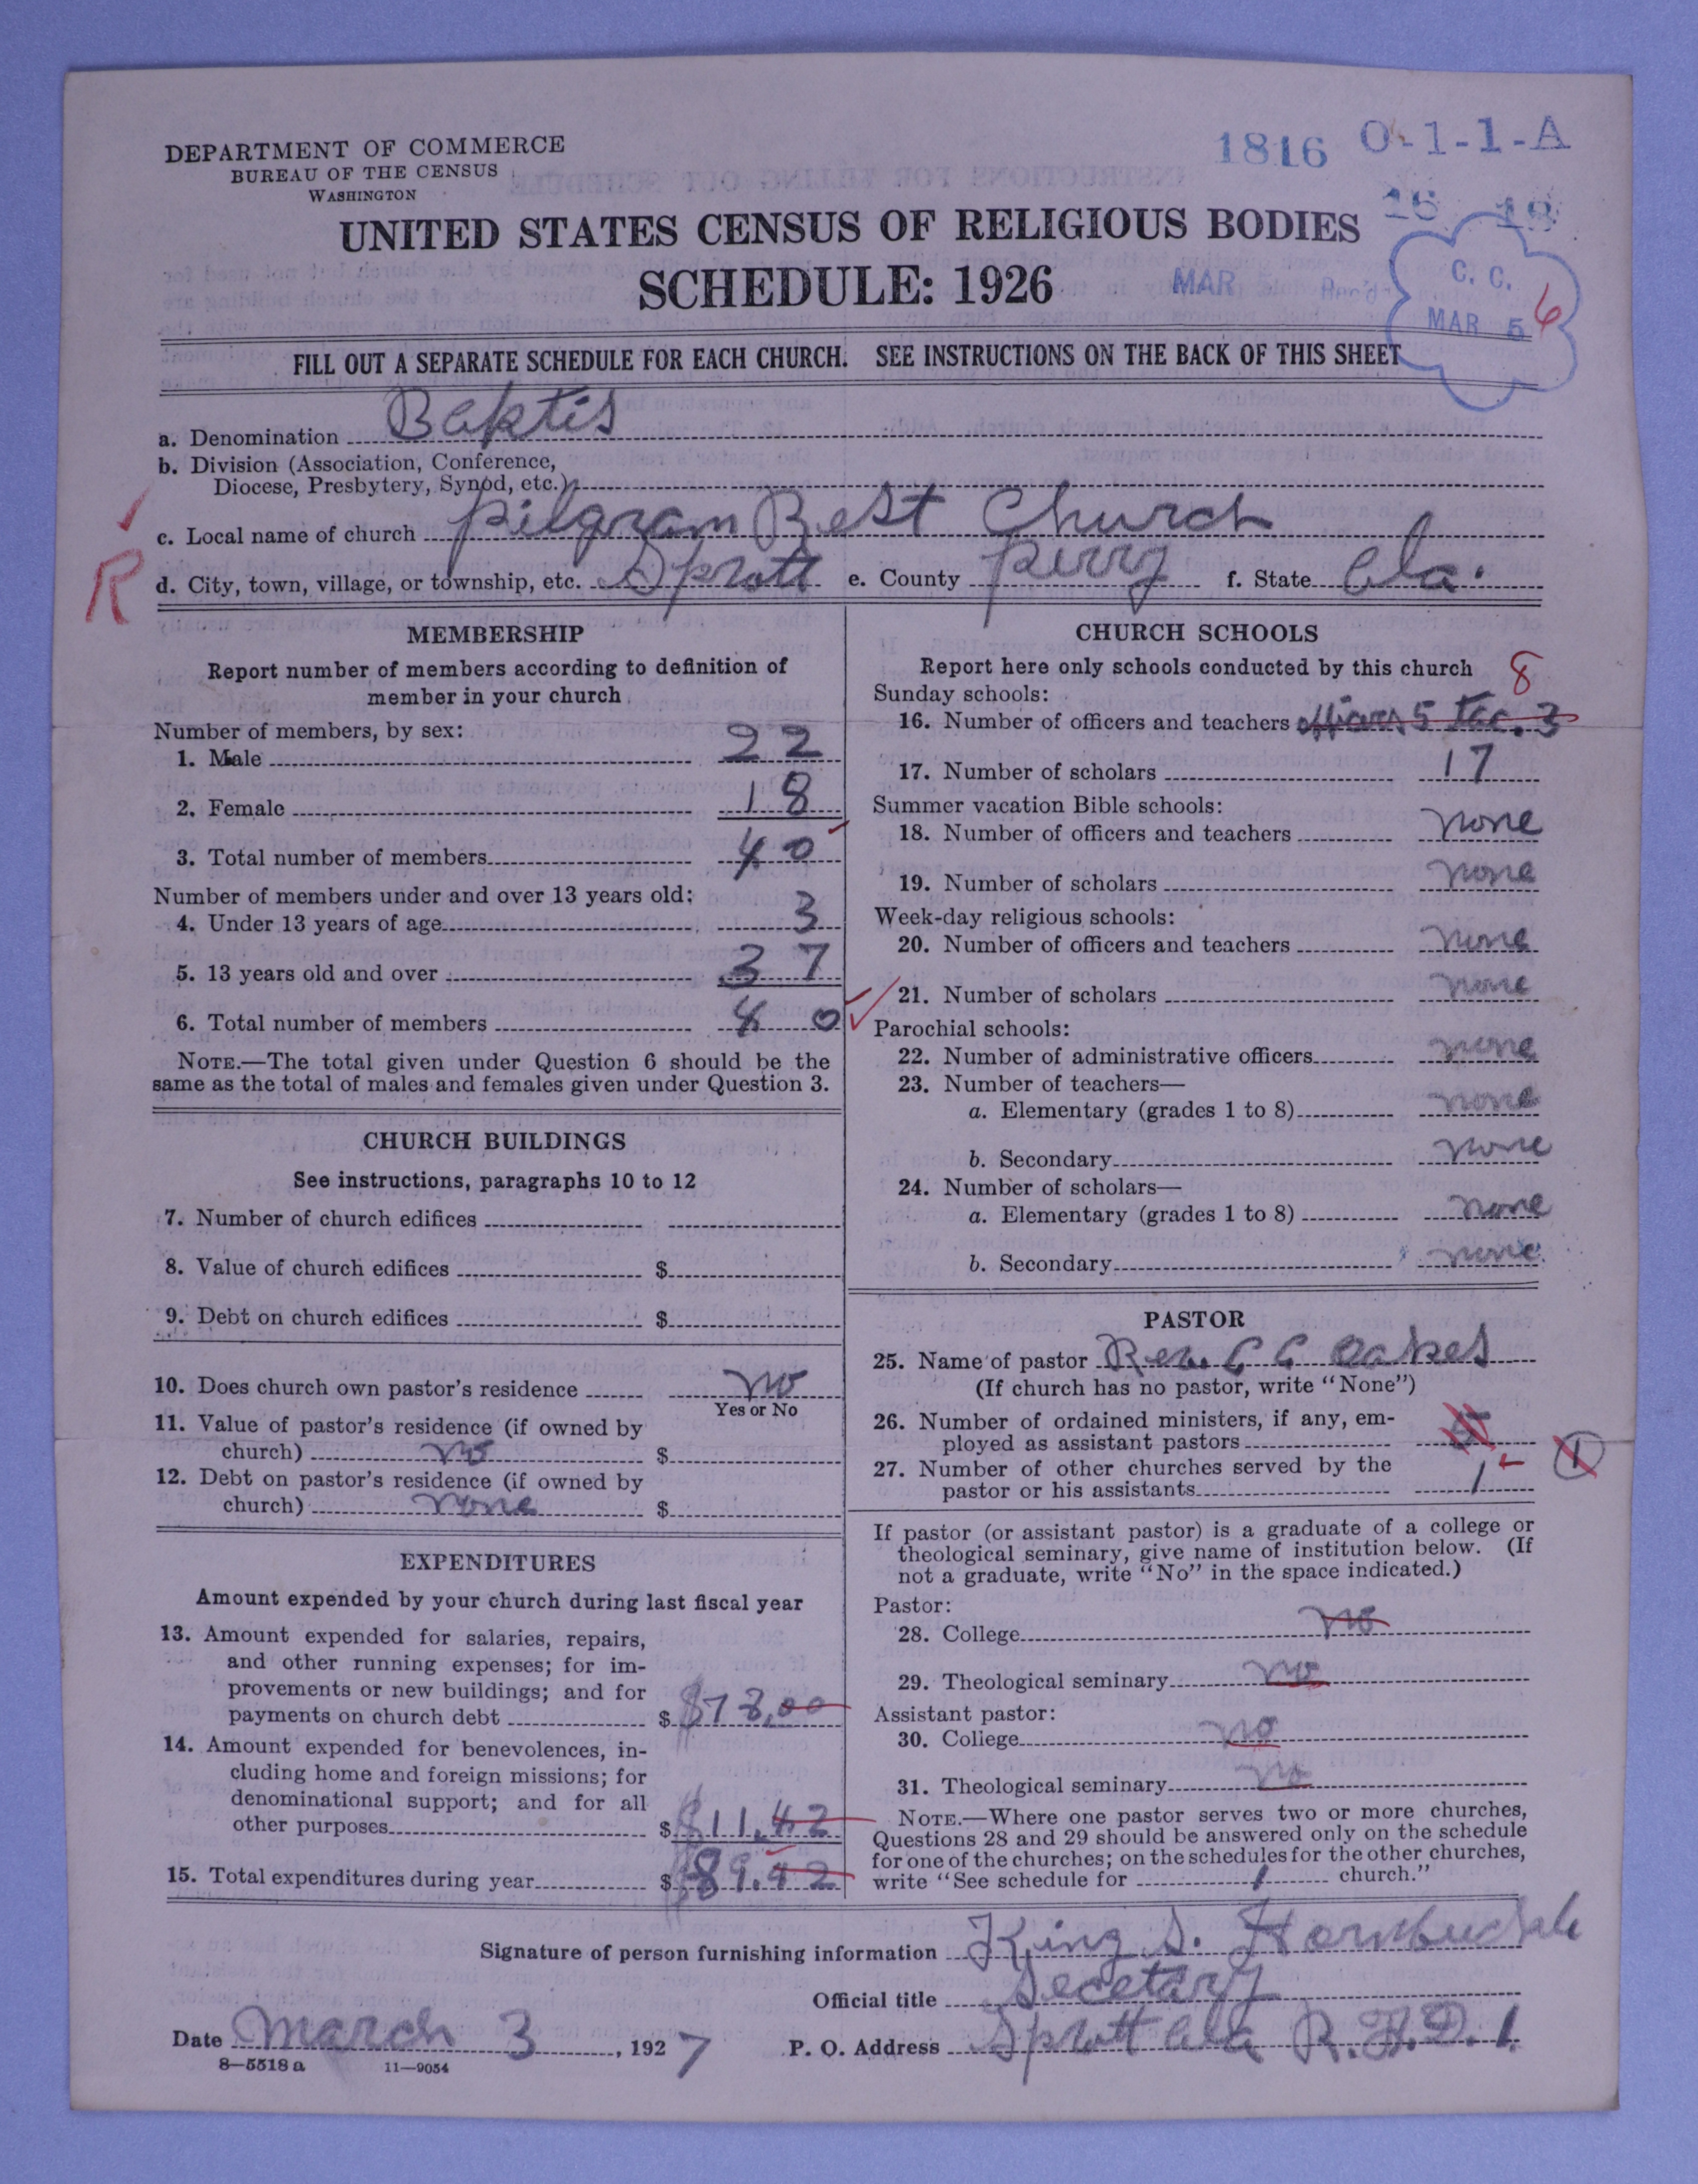 DEPARTMENT OF COMMERCE
BUREAU OF THE CENSUS
WASHINGTON
1816 O-1-1-A
16 18
UNITED STATES CENSUS OF RELIGIOUS BODIES
SCHEDULE: 1926
MAR
C. C.
MAR 5 6
FILL OUT A SEPARATE SCHEDULE FOR EACH CHURCH. SEE INSTRUCTIONS ON THE BACK OF THIS SHEET
a. Denomination Baktis
b. Division (Association, Conference,
Diocese, Presbytery, Synod, etc.)
c. Local name of church pilgram Rest Church
R
d. City, town, village, or township, etc. Sprott e. County perry f. State ala.
MEMBERSHIP
Report number of members according to definition of
member in your church
Number of members, by sex:
1. Male 22
2. Female 18
3. Total number of members 40
Number of members under and over 13 years old:
4. Under 13 years of age 3
5. 13 years old and over 37
6. Total number of members 40
NOTE.—The total given under Question 6 should be the
same as the total of males and females given under Question 3.
CHURCH BUILDINGS
See instructions, paragraphs 10 to 12
7. Number of church edifices
8. Value of church edifices $
9. Debt on church edifices $
10. Does church own pastor's residence no
Yes or No
11. Value of pastor's residence (if owned by
church) no $
12. Debt on pastor's residence (if owned by
church) none $
EXPENDITURES
Amount expended by your church during last fiscal year
13. Amount expended for salaries, repairs,
and other running expenses; for im-
provements or new buildings; and for
payments on church debt $ $78.00
14. Amount expended for benevolences, in-
cluding home and foreign missions; for
denominational support; and for all
other purposes $ $11.42
15. Total expenditures during year $ $89.42
CHURCH SCHOOLS
Report here only schools conducted by this church
8
Sunday schools:
16. Number of officers and teachers 5 3
17. Number of scholars 17
Summer vacation Bible schools:
18. Number of officers and teachers none
19. Number of scholars none
Week-day religious schools:
20. Number of officers and teachers none
21. Number of scholars none
Parochial schools:
22. Number of administrative officers none
23. Number of teachers—
a. Elementary (grades 1 to 8) none
b. Secondary none
24. Number of scholars—
a. Elementary (grades 1 to 8) none
b. Secondary none
PASTOR
25. Name of pastor Rev. C C Oakes
(If church has no pastor, write "None")
26. Number of ordained ministers, if any, em-
ployed as assistant pastors
27. Number of other churches served by the
pastor or his assistants 1
1
If pastor (or assistant pastor) is a graduate of a college or
theological seminary, give name of institution below. (If
not a graduate, write "No" in the space indicated.)
Pastor:
28. College no
29. Theological seminary no
Assistant pastor:
30. College no
31. Theological seminary no
NOTE.—Where one pastor serves two or more churches,
Questions 28 and 29 should be answered only on the schedule
for one of the churches; on the schedules for the other churches,
write "See schedule for 1 church."
Signature of person furnishing information King S.
Official title Secetary
Date March 3, 1927 P. O. Address Sprott ala R.F.D. 1
8—5518 a 11—9054